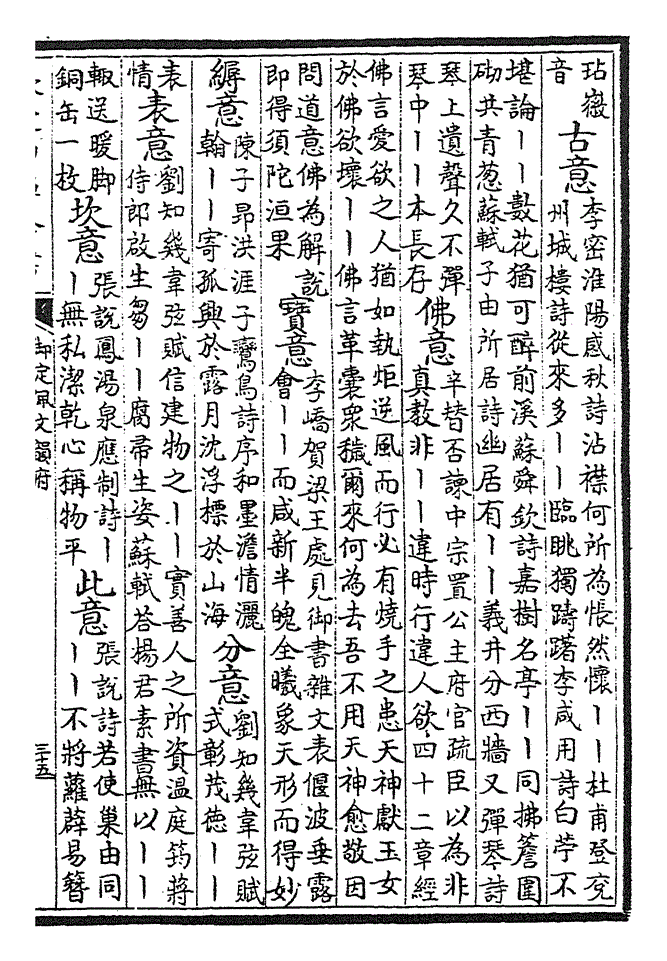 玷嶽
音
古意
李密淮陽感秋詩沾襟何所為悵然懷〡〡杜甫登兗
州城樓詩從來多〡〡臨眺獨躊躇李咸用詩白苧不
堪論〡〡數花猶可醉前溪蘇舜欽詩嘉樹名亭〡〡同拂簷圍
砌共青葱蘇軾子由所居詩幽居有〡〡義井分西牆又彈琴詩
琴上遺聲久不彈
琴中〡〡本長存
佛意
辛替否諫中宗置公主府官疏臣以為非
真教非〡〡違時行違人欲四十二章經
佛言愛欲之人猶如執炬逆風而行必有燒手之患天神獻玉女
於佛欲壞〡〡佛言革囊衆穢爾來何為去吾不用天神愈敬因
問道意佛為解說
即得須陀洹果
寳意
李嶠賀梁王處見御書雜文表偃波垂露
會〡〡而咸新半魄全曦象天形而得妙
縟意
陳子昂洪涯子鸞鳥詩序和墨澹情灑
翰〡〡寄孤興於露月沈浮標於山海
分意
劉知幾韋弦賦
式彰茂德〡〡
表
情
表意
劉知幾韋弦賦信建物之〡〡實善人之所資温庭筠蔣
侍郎啟生芻〡〡腐帚生姿蘇軾答楊君素書無以〡〡
輙送暖脚
銅缶一枚
坎意
張說鳳湯泉應制詩〡
〡無私潔乾心稱物平
此意
張說詩若使巢由同
〡〡不將蘿薜易簪
御定佩文韻府
三十五